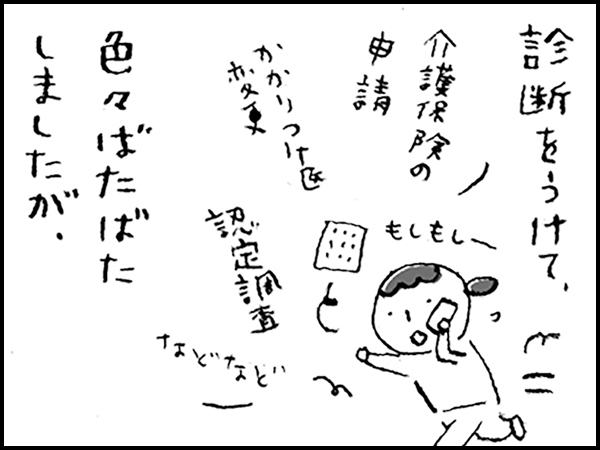 診断をうけて、
介護保険の
申請
かかりつけ医
変更
認定調査
などなど
もしもし〜
色々ばたばた
しましたが、